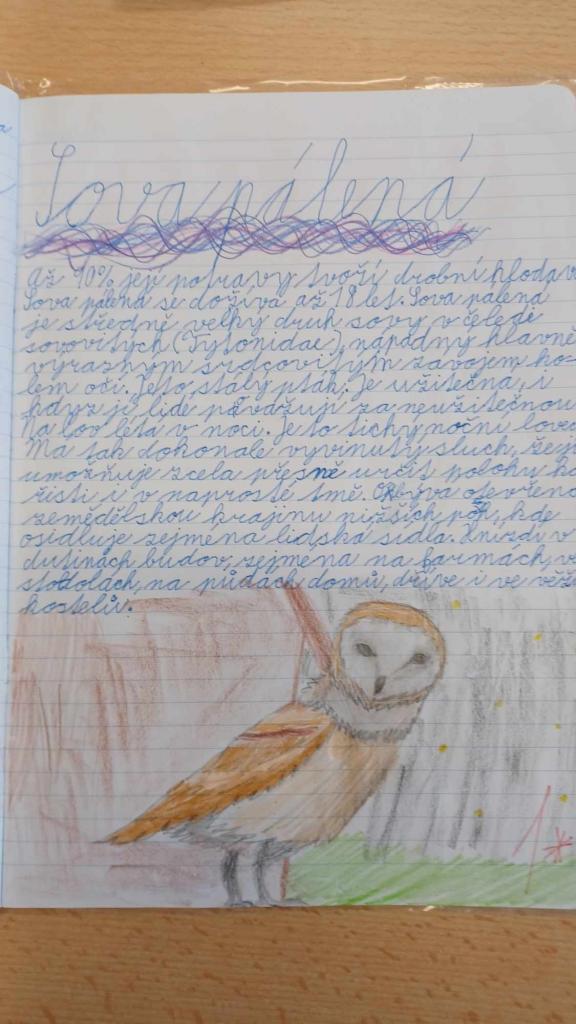 Sova pálená
Až 90% její potravy tvoří drobní hlodav
Sova pálená se dožívá až 18 let. Sova pálená
je středně velký druh sovy v čeledi
sovovitých (Tytonidae) nápadný hlavně
výrazným srdcovitým závojem ko-
lem očí. Je to stálý pták. Je užitečná, i
když ji lidé považují za neužitečnou
Na lov létá v noci. Je to tichý noční lovec
Má tak dokonale vyvinutý sluch, že jí
umožňuje zcela přesně určit polohy ko
řisti i v naprosté tmě. Obývá otevřeno
zemědělskou krajinu nižších poloh, kde
osidluje zejména lidská sídla. Hnízdí v
dutinách budov, zejména na farmách, ve
stodolách, na půdách domů, dříve i ve věží
kostelů.
1*